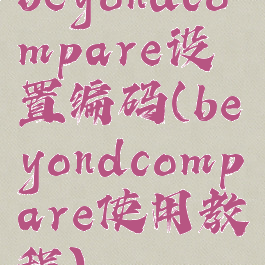 beyondco
mpare设
置编码(be
yondcomp
are使用教
程)